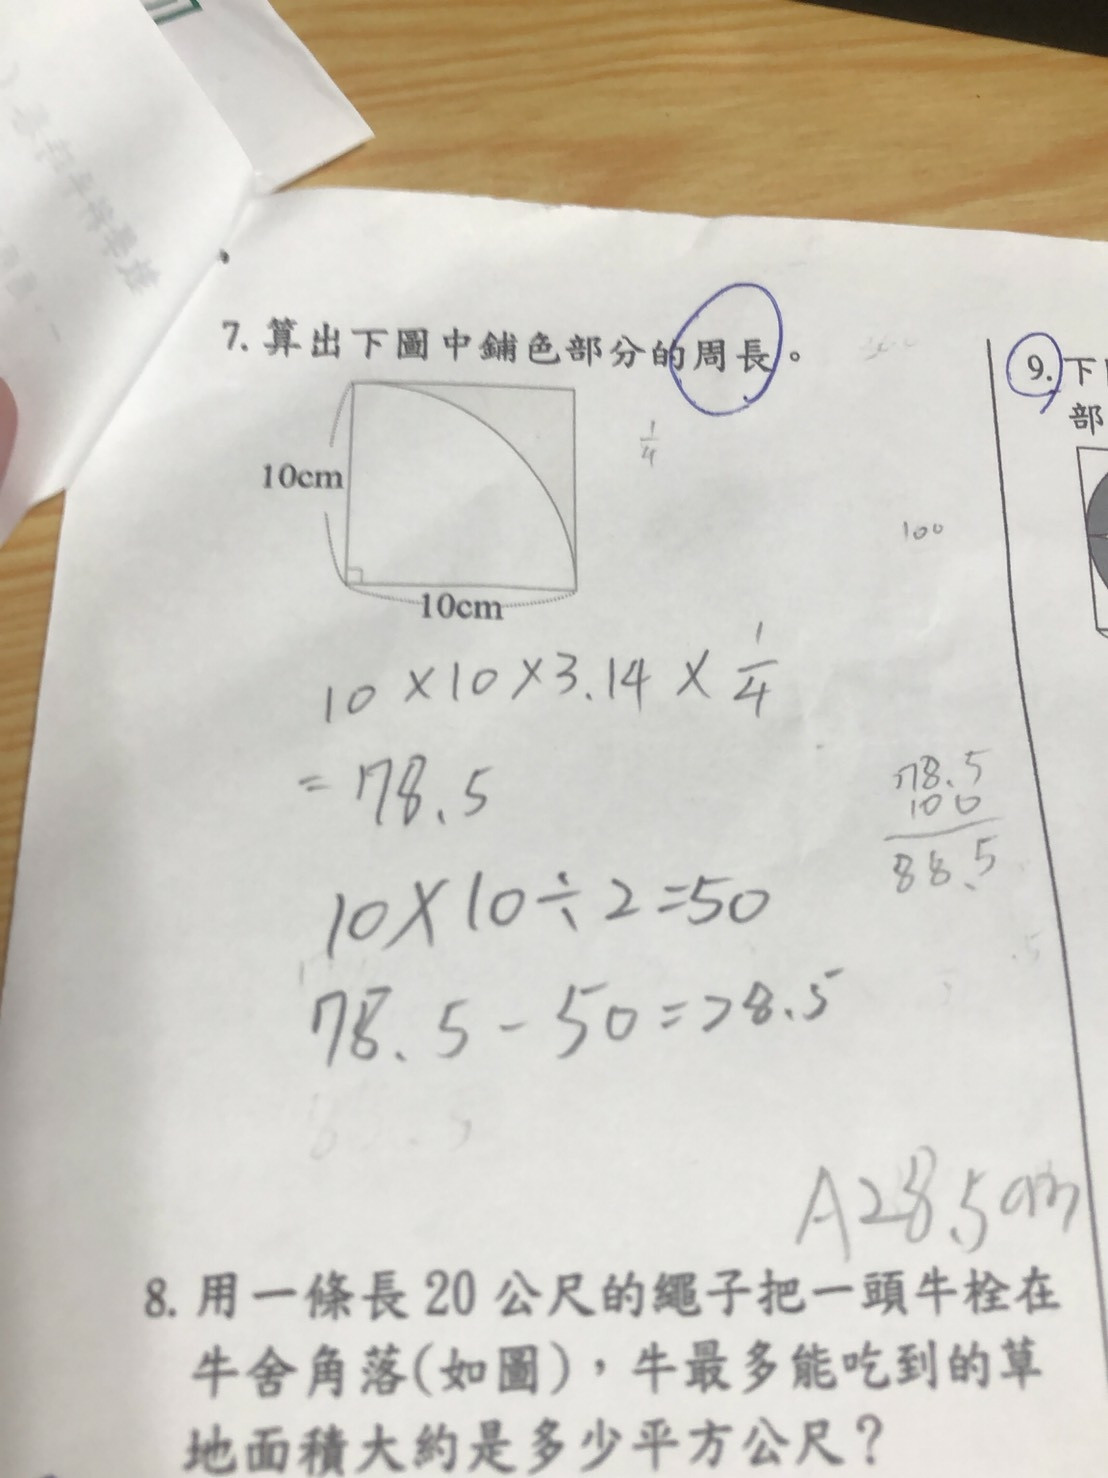 7. 算出下圖中鋪色部分的周長。
1/4
10cm
100
10cm
10×10×3.14×1/4
=78.5
78.5
100
88.5
10×10÷2=50
78.5-50=28.5
A28.5cm
8. 用一條長20公尺的繩子把一頭牛栓在
牛舍角落(如圖),牛最多能吃到的草
地面積大約是多少平方公尺?
9. 下
部